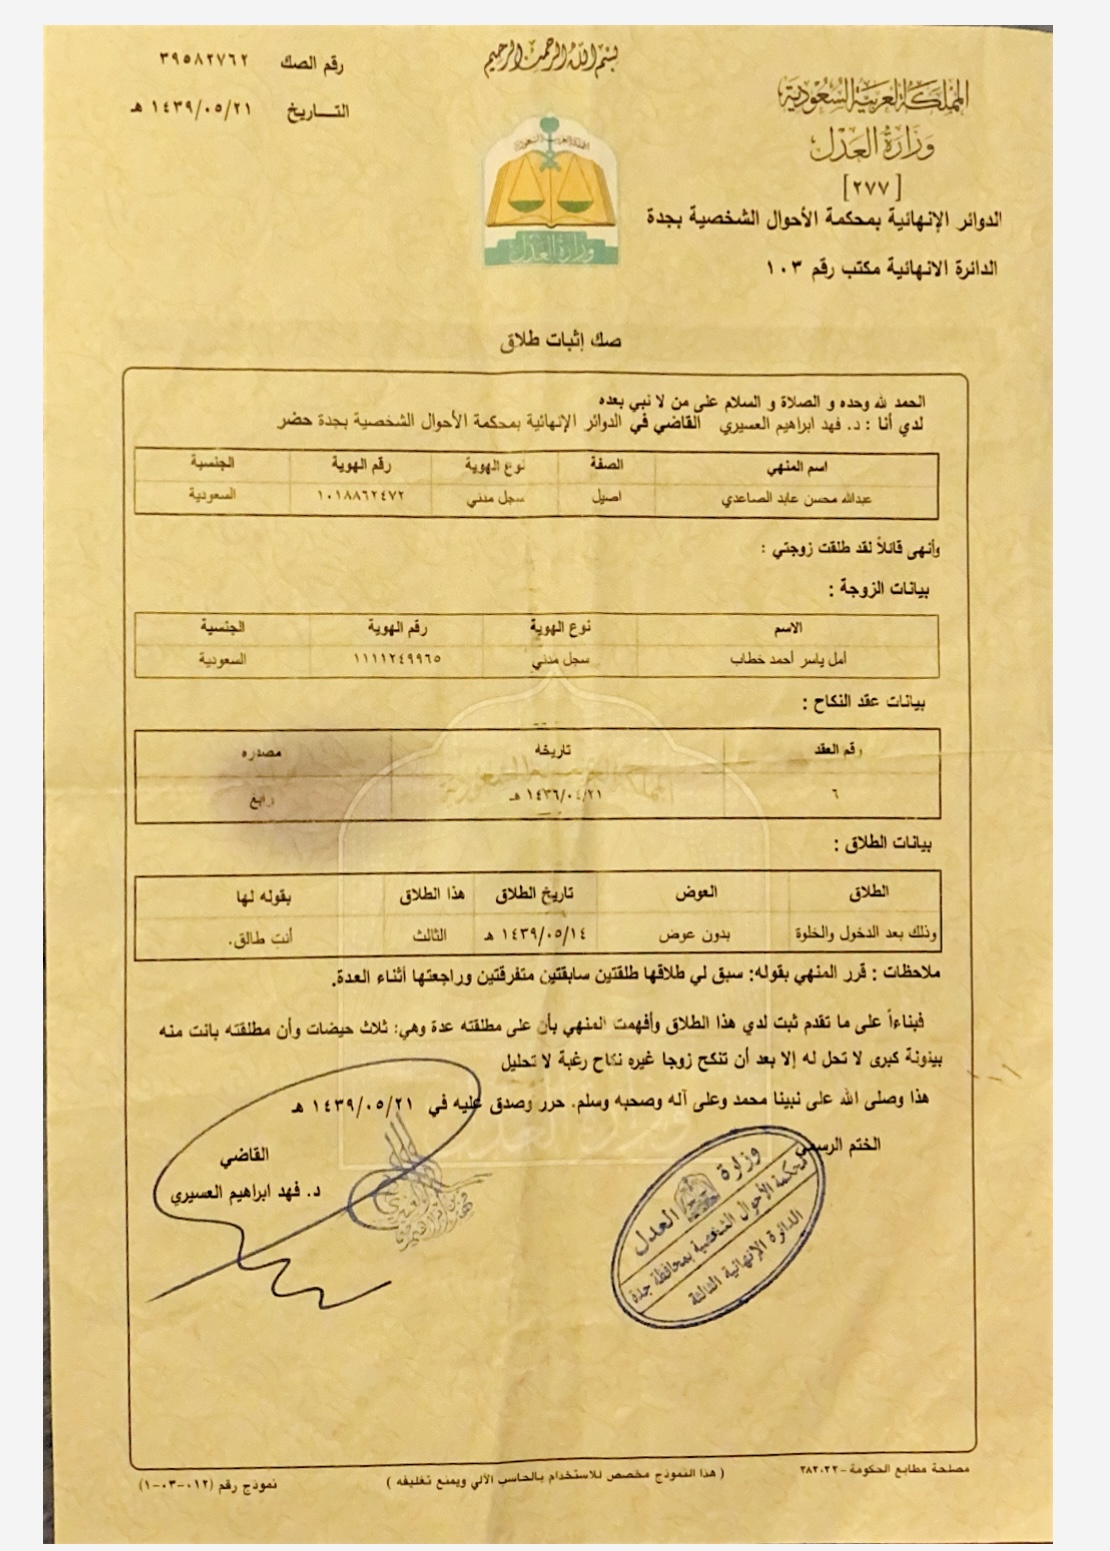 بسم الله الرحمن الرحيم
المملكة العربية السعودية
وزارة العدل
[٢٧٧]
الدوائر الإنهائية بمحكمة الأحوال الشخصية بجدة
الدائرة الانهائية مكتب رقم ١٠٣
رقم الصك ٣٩٥٨٢٧٦٢
التـــاريخ ١٤٣٩/٠٥/٢١ هـ
وزارة العدل
صك إثبات طلاق
الحمد لله وحده و الصلاة و السلام على من لا نبي بعده
لدي أنا : د. فهد ابراهيم العسيري القاضي في الدوائر الإنهائية بمحكمة الأحوال الشخصية بجدة حضر
اسم المنهي الصفة نوع الهوية رقم الهوية الجنسية
عبدالله محسن عابد الصاعدي اصيل سجل مدني ١٠١٨٨٦٢٤٧٢ السعودية
وأنهى قائلاً لقد طلقت زوجتي :
بيانات الزوجة :
الاسم نوع الهوية رقم الهوية الجنسية
أمل ياسر أحمد خطاب سجل مدني ١١١١٢٤٩٩٦٥ السعودية
بيانات عقد النكاح :
رقم العقد تاريخه مصدره
٦ ١٤٣٦/٠٤/٢١ هـ رابغ
بيانات الطلاق :
الطلاق العوض تاريخ الطلاق هذا الطلاق بقوله لها
وذلك بعد الدخول والخلوة بدون عوض ١٤٣٩/٠٥/١٤ هـ الثالث أنتِ طالق.
ملاحظات : قرر المنهي بقوله: سبق لي طلاقها طلقتين سابقتين متفرقتين وراجعتها أثناء العدة.
فبناءاً على ما تقدم ثبت لدي هذا الطلاق وأفهمت المنهي بأن على مطلقته عدة وهي: ثلاث حيضات وأن مطلقته بانت منه
بينونة كبرى لا تحل له إلا بعد أن تنكح زوجا غيره نكاح رغبة لا تحليل
هذا وصلى الله على نبينا محمد وعلى آله وصحبه وسلم. حرر وصدق عليه في ١٤٣٩/٠٥/٢١ هـ
الختم الرسمي
القاضي
د. فهد ابراهيم العسيري
وزارة العدل
محكمة الأحوال الشخصية بمحافظة جدة
الدائرة الإنهائية الثالثة
مصلحة مطابع الحكومة - ٣٨٢٠٢٢
( هذا النموذج مخصص للاستخدام بالحاسب الآلي ويمنع تغليفه )
نموذج رقم (٠١٢-٠٣-١)